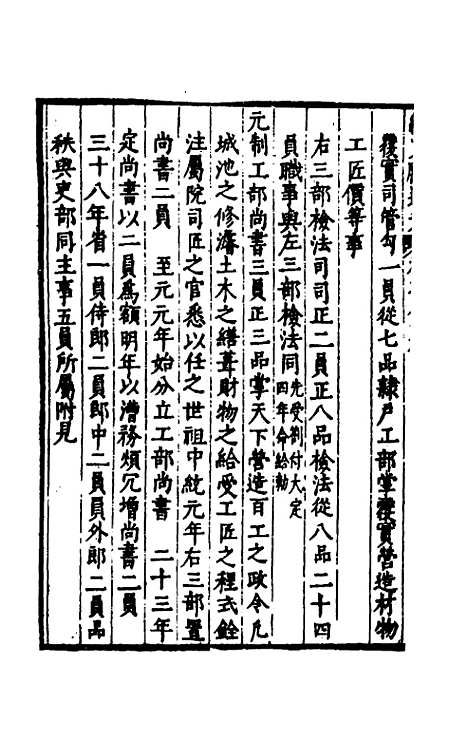 覆實司管勾一員從七品隸戶工部掌覆實營造材物
工匠價等事
右三部檢法司司正二員正八品檢法從八品二十四
員職事與左三部檢法同先受劄付大定四年命給勅
元制工部尚書三員正三品掌天下營造百工之政令凡
城池之修濬土木之繕葺財物之給受工匠之程式銓
注屬院司匠之官悉以任之世祖中統元年右三部置
尚書二員　至元元年始分立工部尚書　二十三年
定尚書以二員爲額明年以漕務煩冗增尚書二員
三十八年省一員侍郎二員郎中二員員外郎二員品
秩與吏部同主事五員所屬附見